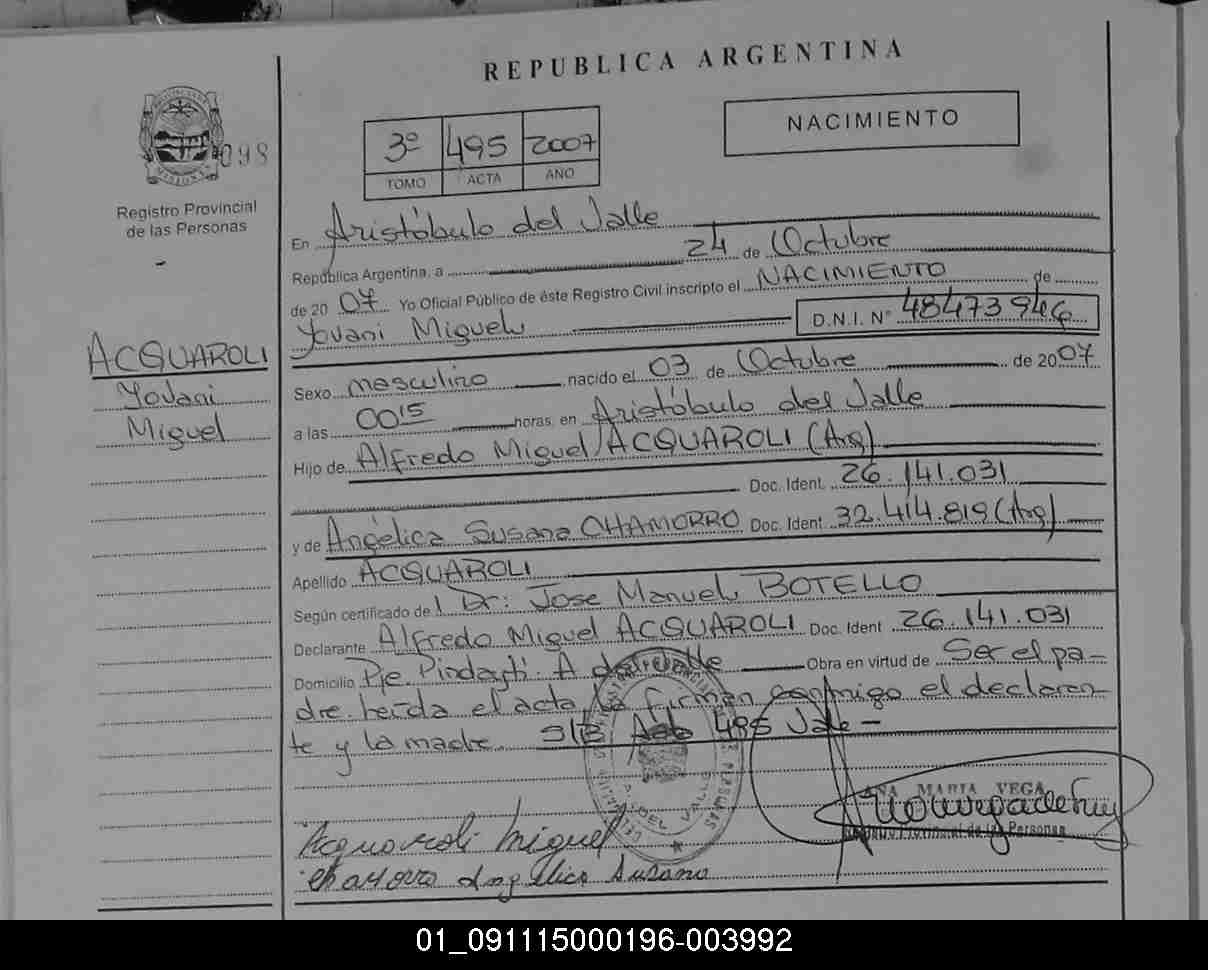 REPUBLICA ARGENTINA
NACIMIENTO
3º 495 2007
TOMO ACTA AÑO
098
PROVINCIA DE MISIONES
Registro Provincial
de las Personas
ACQUAROLI
Yovani
Miguel
En Aristóbulo del Valle
República Argentina, a 24 de Octubre
de 20 07 Yo Oficial Público de éste Registro Civil inscripto el NACIMIENTO de
Yovani Miguel D.N.I. Nº 48473946
Sexo masculino nacido el 03 de Octubre de 2007
a las 00 15 horas, en Aristóbulo del Valle
Hijo de Alfredo Miguel ACQUAROLI (Arg)
Doc. Ident. 26.141.031
y de Angélica Susana CHAMORRO Doc. Ident. 32.414.819 (Arg)
Apellido ACQUAROLI
Según certificado del Dr: Jose Manuel BOTELLO
Declarante Alfredo Miguel ACQUAROLI Doc. Ident 26.141.031
Domicilio Pje. A del Valle Obra en virtud de Ser el pa-
dre. Leída el acta, la firman conmigo el declaran-
te y la madre S/B 495 Vale -
Acquaroli Miguel
Chamorro Angelica Susana
ANA MARIA VEGA
Registro Provincial de las Personas
A. DEL VALLE
01_091115000196-003992